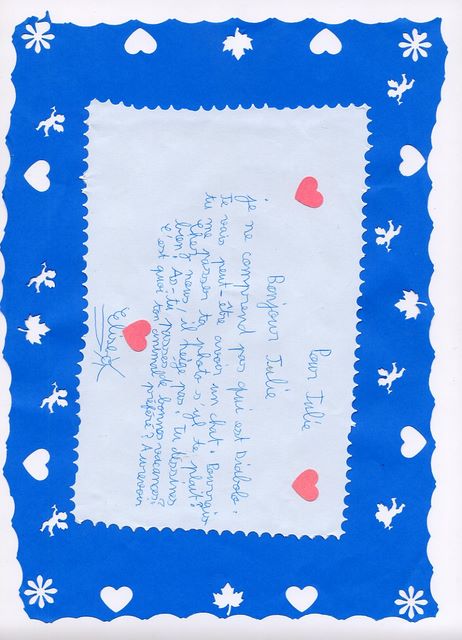 Pour Julie
Bonjour Julie.
je ne comprend pas qui est Diabolo.
Je vais peut-être avoir un chat. Pourrais
tu me passer ta photo s'yl te plaît?
Chez nous, il neige pas. Tu dessines
bien! As-tu passée de bonnes vacances?
C'est quoi ton animal préféré? Aurevoir
Elisa